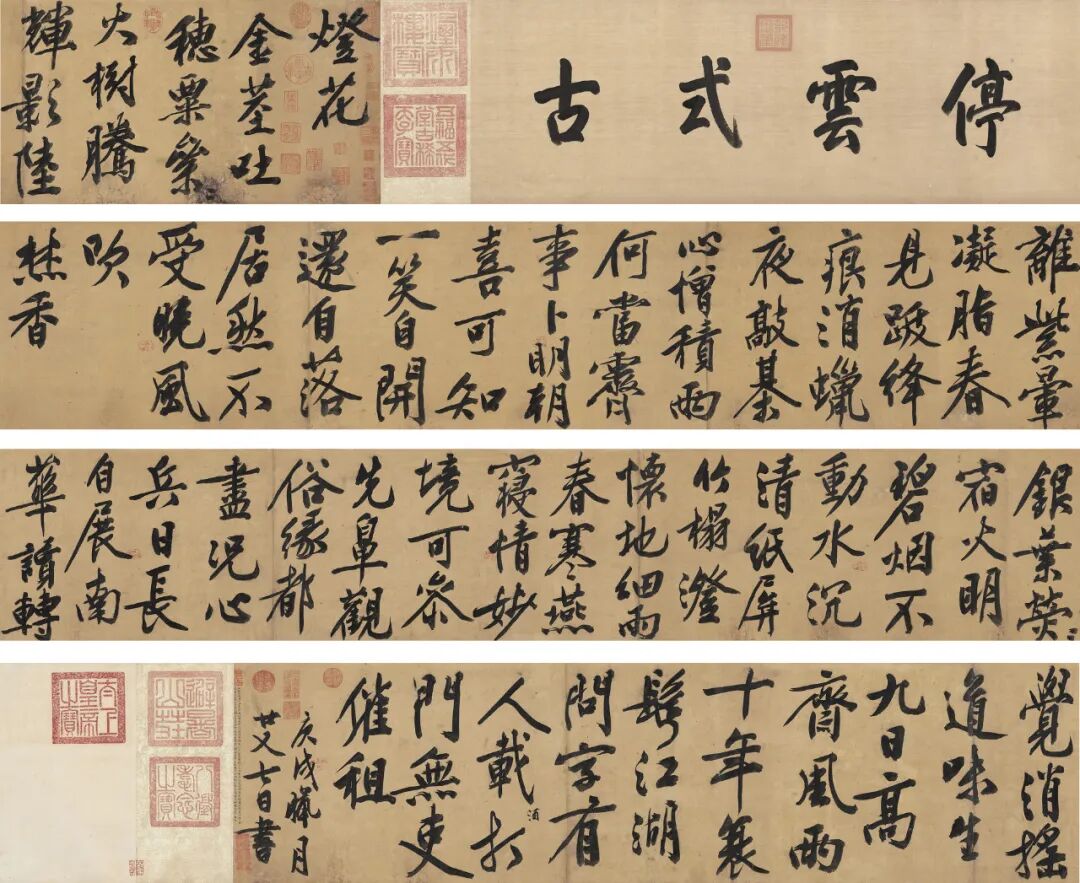 停雲式古
五福五代堂古稀天子寶
燈花
金莖吐
穗粟絫
火樹騰
輝影陸
離紫暈
凝脂春
見跋絳
痕消蠟
夜敲棊
心憎積雨
何當霽
事卜明朝
喜可知
一笑自開
還自落
居然不
受曉風
吹
焚香
銀葉熒〻
宿火明
碧烟不
動水沉
清紙屏
竹榻澄
懷地細雨
春寒燕
寢情妙
境可參
先鼻觀
俗緣都
盡況心
兵日長
自展南
華讀轉
覺消搖
道味生
九日高
齋風雨
十年蓑
鬢江湖
問字有
人載酒打
門無吏
催租
庚戌臘月
廿又七日書
避暑山莊
八徵耄念之寶
太上皇帝之寶